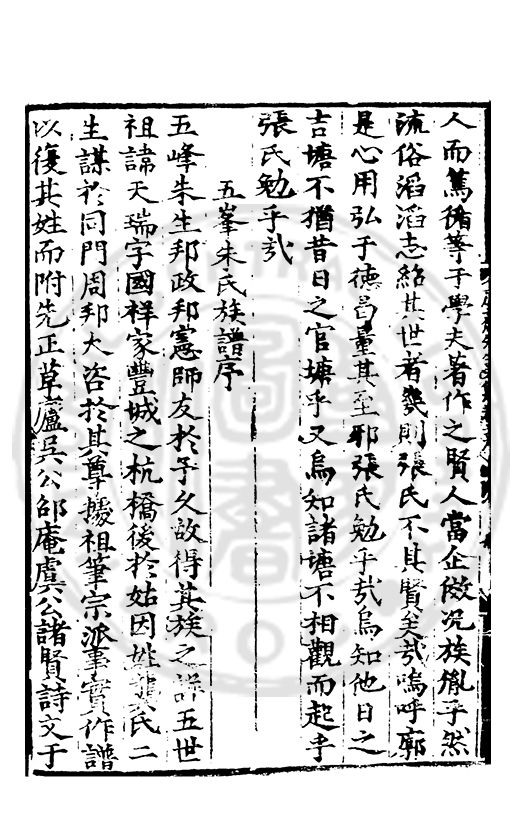 人而篤循等于學夫著作之賢人當企倣况族胤乎然
流俗滔滔志紹其世者幾則張氏不其賢矣哉嗚呼廓
是心用弘于德曷量其至邪張氏勉乎哉烏知他日之
吉塘不猶昔日之官塘乎又烏知諸塘不相觀而起乎
張氏勉乎哉
五峯朱氏族譜序
五峰朱生邦政邦憲師友於予久故得其族之詳五世
祖諱天瑞字國祥家豐城之杭橋後於姑因姓龔氏二
生謀於同門周邦大咨於其尊據祖筆宗派事實作譜
以復其姓而附先正草廬吳公邵庵虞公諸賢詩文于